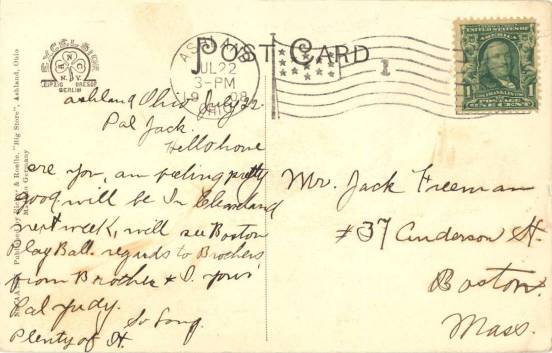 POST CARD
EXCELSIOR
N.Y.
LEIPZIG DRESDEN
BERLIN
ASHLAND
JUL 22
3-PM
1908
OHIO
1
UNITED STATES OF AMERICA
1 1
ONE CENT
Published by & Roselle, "Big Store", Ashland, Ohio
Made in Germany
Ashland Ohio July 22
Pal Jack.
Hello how
are you, am feeling pretty
good will be In Cleveland
next week, will see Boston
Play Ball. regards to Brothers
from Brother & I. yours
Pal Judy.
So Long.
Plenty of It.
Mr. Jack Freeman
#37 Anderson St.
Boston.
Mass.